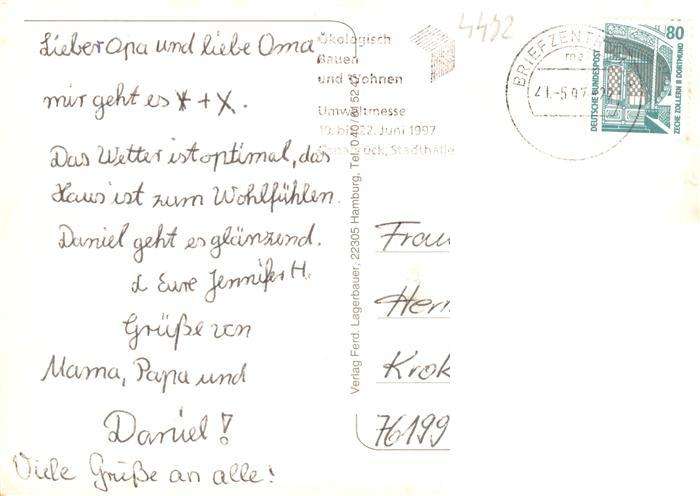 Lieber Opa und liebe Oma
mir geht es * + X.
Das Wetter ist optimal, das
Haus ist zum Wohlfühlen.
Daniel geht es glänzend.
Eure Jennifer H.
Grüße von
Mama, Papa und
Daniel!
Viele Grüße an alle!
Verlag Ferd. Lagerbauer, 22305 Hamburg, Tel. 040/61 52 4
4492
Ökologisch
Bauen
und Wohnen
Umweltmesse
19. bis 22. Juni 1997
Stadthalle
BRIEFZEN
-5.97
80
DEUTSCHE BUNDESPOST
ZECHE ZOLLERN II DORTMUND
Frau
Her
Krok
76199